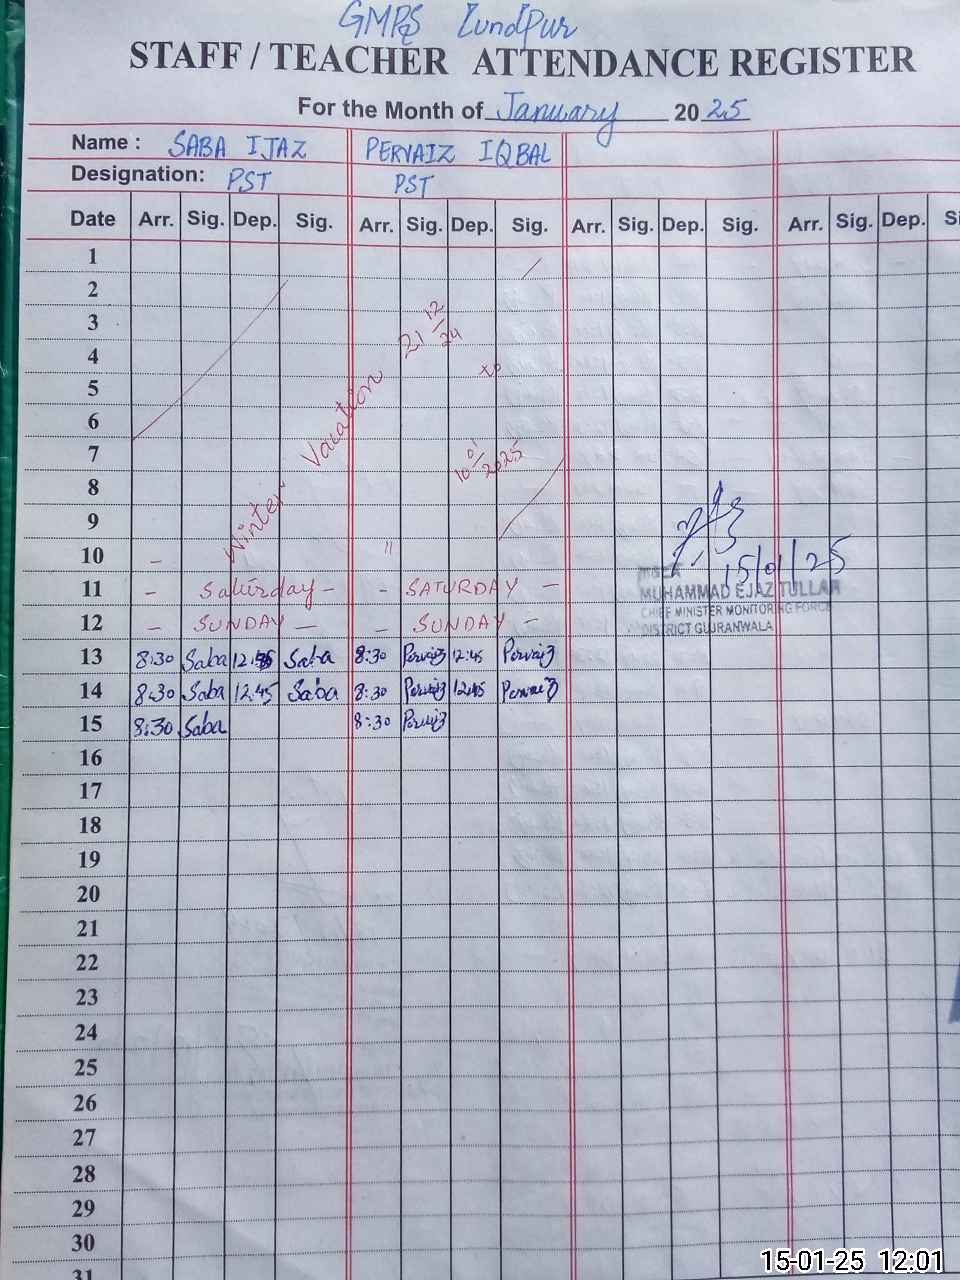 GMPS LundPur
STAFF / TEACHER ATTENDANCE REGISTER
For the Month of January 2025
Name : SABA IJAZ PERVAIZ IQBAL
Designation: PST PST
Date Arr. Sig. Dep. Sig. Arr. Sig. Dep. Sig. Arr. Sig. Dep. Sig. Arr. Sig. Dep. Si
1
2
3
4
5
6
7
8
9
Winter Vacation 21 12/24 to 10 01/2025
10 - "
11 - Saturday - - SATURDAY -
12 - SUNDAY - - SUNDAY -
13 8:30 Saba 12:45 Saba 8:30 Pervaiz 12:45 Pervaiz
14 8:30 Saba 12:45 Saba 8:30 Pervaiz 12:45 Pervaiz
15 8:30 Saba 8:30 Pervaiz
15/01/25
M&EA
MUHAMMAD EJAZ TULLAH
CHIEF MINISTER MONITORING FORCE
DISTRICT GUJRANWALA
16
17
18
19
20
21
22
23
24
25
26
27
28
29
30
31
15-01-25 12:01